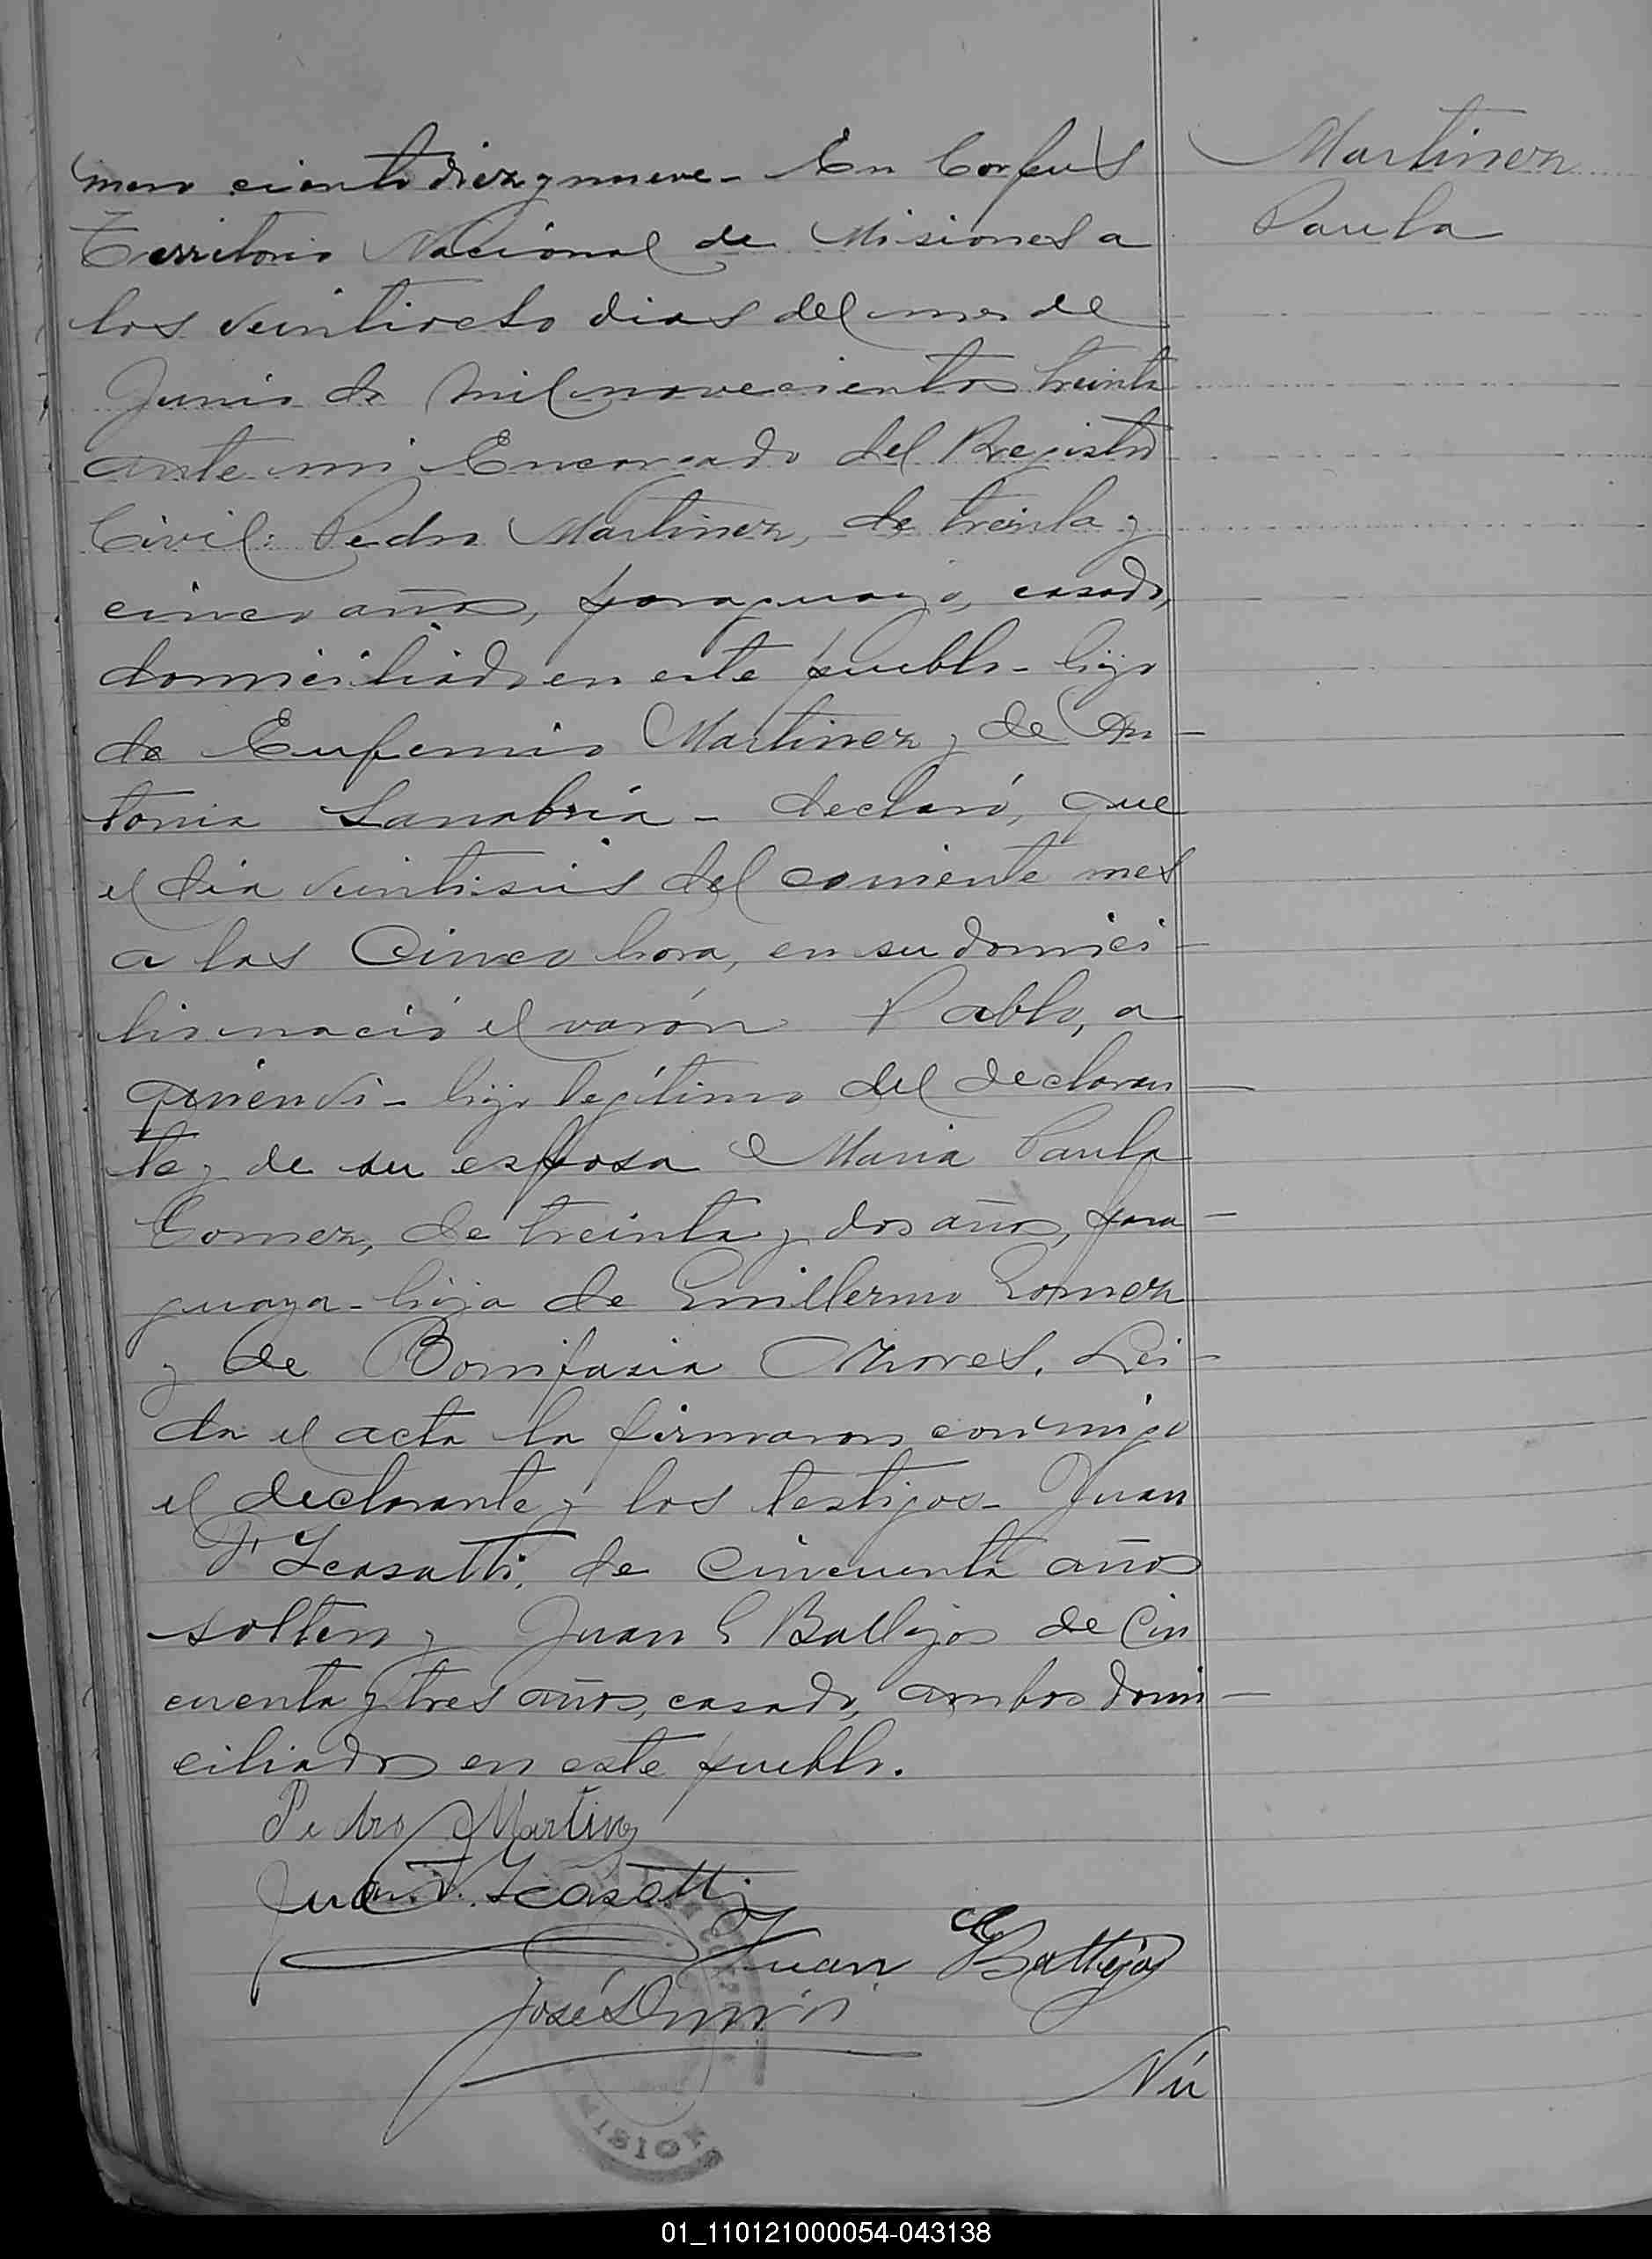 mero ciento diez y nueve - En Corpus
Martinez
Territorio Nacional de Misiones a
Paula
los veintiocho dias del mes de
Junio de mil novecientos treinta
ante mi Encargado del Registro
Civil: Pedro Martinez, de treinta y
cinco años, paraguayo, casado,
domiciliado en este pueblo - hijo
de Eufemio Martinez y de An-
tonia Sanabria - declaró, que
el día veintiseis del corriente mes
a las Cinco hora, en su domici-
lio nació el varón Pablo, a
quien vi - hijo legítimo del declaran-
te y de su esposa Maria Paula
Gomez, de treinta y dos años, para-
guaya - hija de Guillermo Gomez
y de Bonifasia . Lei-
da el acta la firmaron conmigo
el declarante y los testigos - Juan
F. Scasatti, de cincuenta años
soltero y Juan E Ballejos de Cin
cuenta y tres años, casado, ambos domi-
ciliados en este pueblo.
Pedro Martinez
Juan. F. Scasatti
Juan E Ballejos
José
Nú
MISIONES
01_110121000054-043138